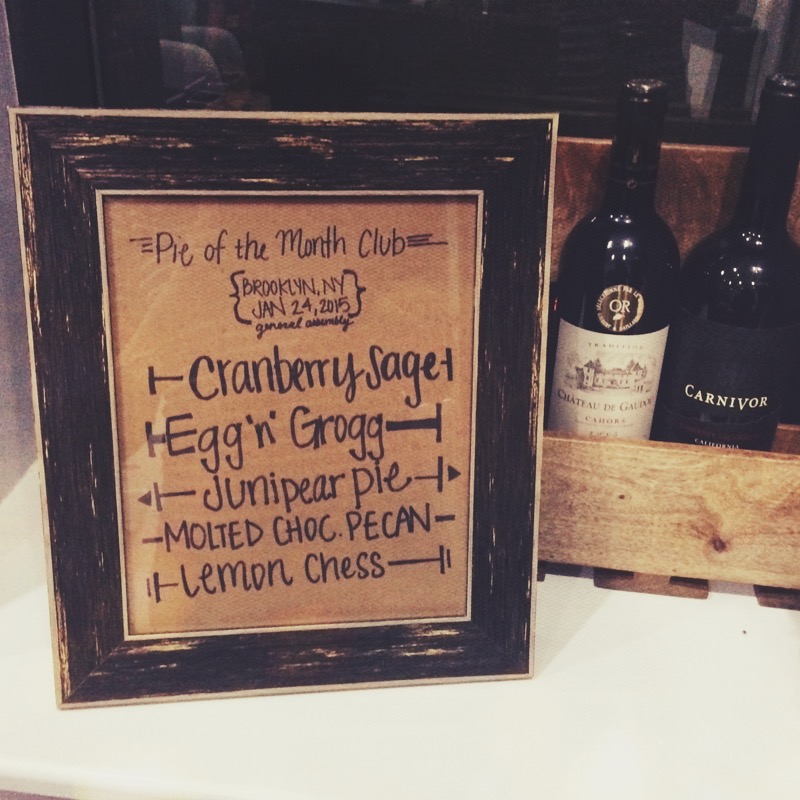 Pie of the Month Club
BROOKLYN, NY
JAN 24, 2015
general assembly
Cranberry Sage
Egg 'n' Grogg
Junipear pie
MOLTED CHOC. PECAN
Lemon Chess
OR
TRADITION
CHÂTEAU DE
CAHORS
CARNIVOR
CALIFORNIA